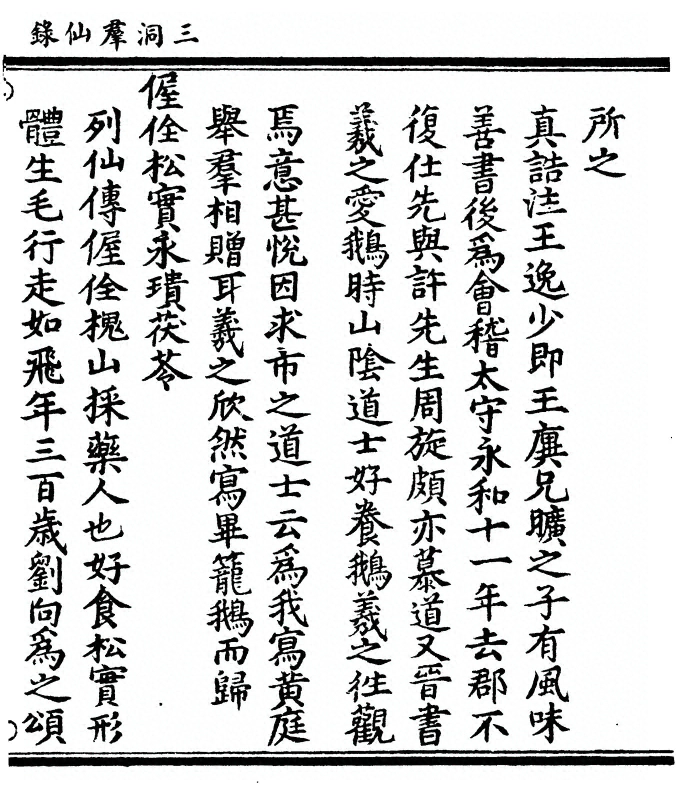 三洞羣仙錄
所之
真誥注王逸少即王廙兄曠之子有風味
善書後爲會稽太守永和十一年去郡不
復仕先與許先生周旋頗亦慕道又晉書
羲之愛鵝時山陰道士好養鵝羲之往觀
焉意甚悅因求市之道士云爲我寫黃庭
舉羣相贈耳羲之欣然寫畢籠鵝而歸
偓佺松實永璝茯苓
列仙傳偓佺槐山採藥人也好食松實形
體生毛行走如飛年三百歲劉向爲之頌